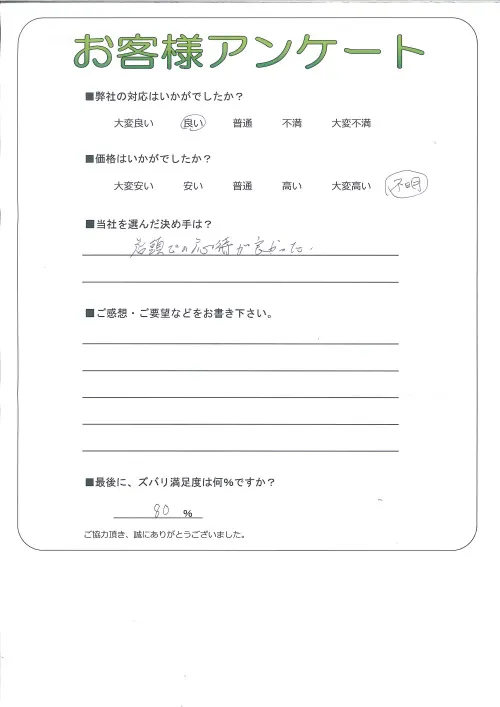 お客様アンケート
■弊社の対応はいかがでしたか？
大変良い 良い 普通 不満 大変不満
■価格はいかがでしたか？
大変安い 安い 普通 高い 大変高い 不明
■当社を選んだ決め手は？
店頭での応待が良かった.
■ご感想・ご要望などをお書き下さい。
■最後に、ズバリ満足度は何%ですか？
80 %
ご協力頂き、誠にありがとうございました。